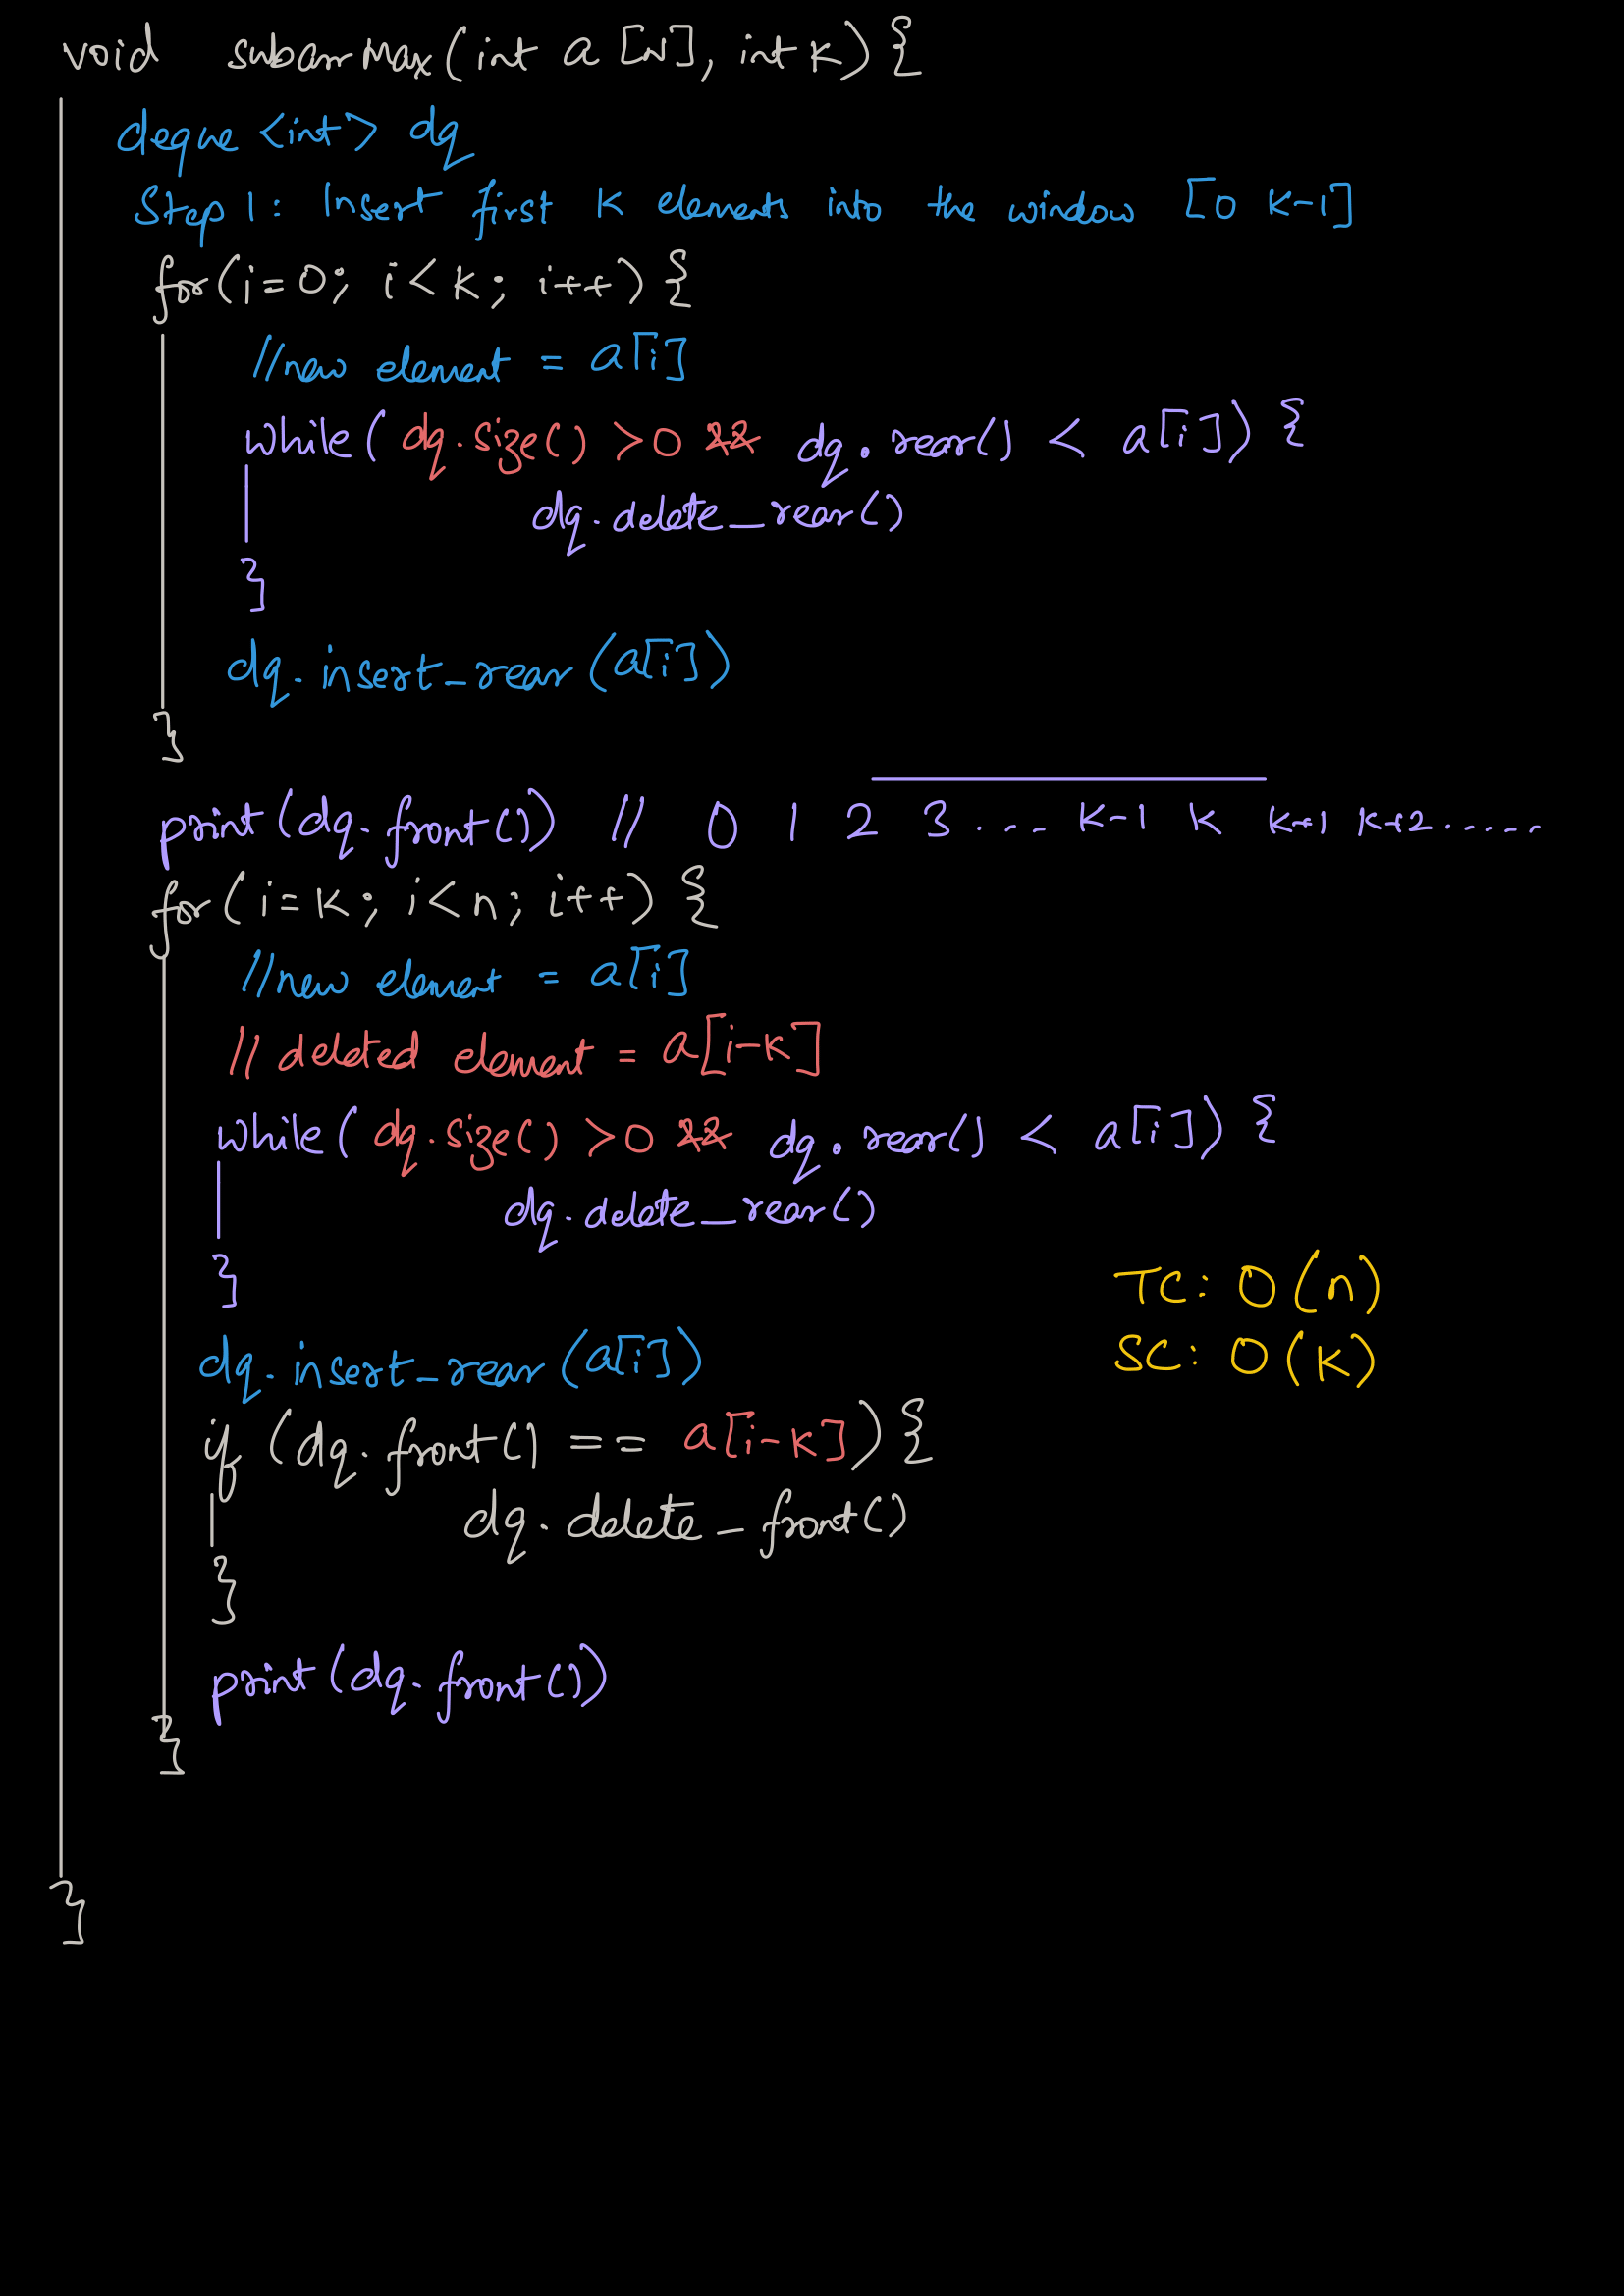 void subarrMax(int a[N], int k){
deque <int> dq
Step 1: Insert first K elements into the window [0 K-1]
for(i=0; i<k; i++){
//new element = a[i]
while( dq.size() >0 && dq.rear() < a[i]) {
dq.delete_rear()
}
dq.insert_rear(a[i])
}
print(dq.front()) // 0 1 2 3 ... K-1 K K+1 K+2 .....
for(i=K; i<n; i++) {
//new element = a[i]
// deleted element = a[i-K]
while( dq.size() >0 && dq.rear() < a[i]) {
dq.delete_rear()
}
TC: O(n)
dq.insert_rear(a[i])
SC: O(K)
if (dq.front() == a[i-K]){
dq.delete_front()
}
print(dq.front())
}
}